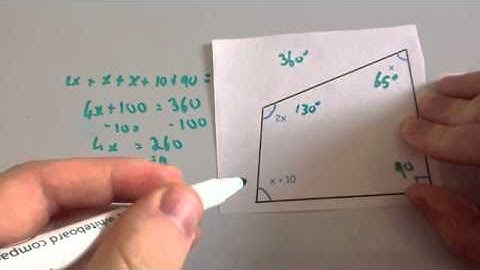 360°
2x + x + x + 10 + 90 =
4x + 100 = 360
-100 -100
4x = 260
x
65°
2x
130°
x + 10
90
whiteboard compa